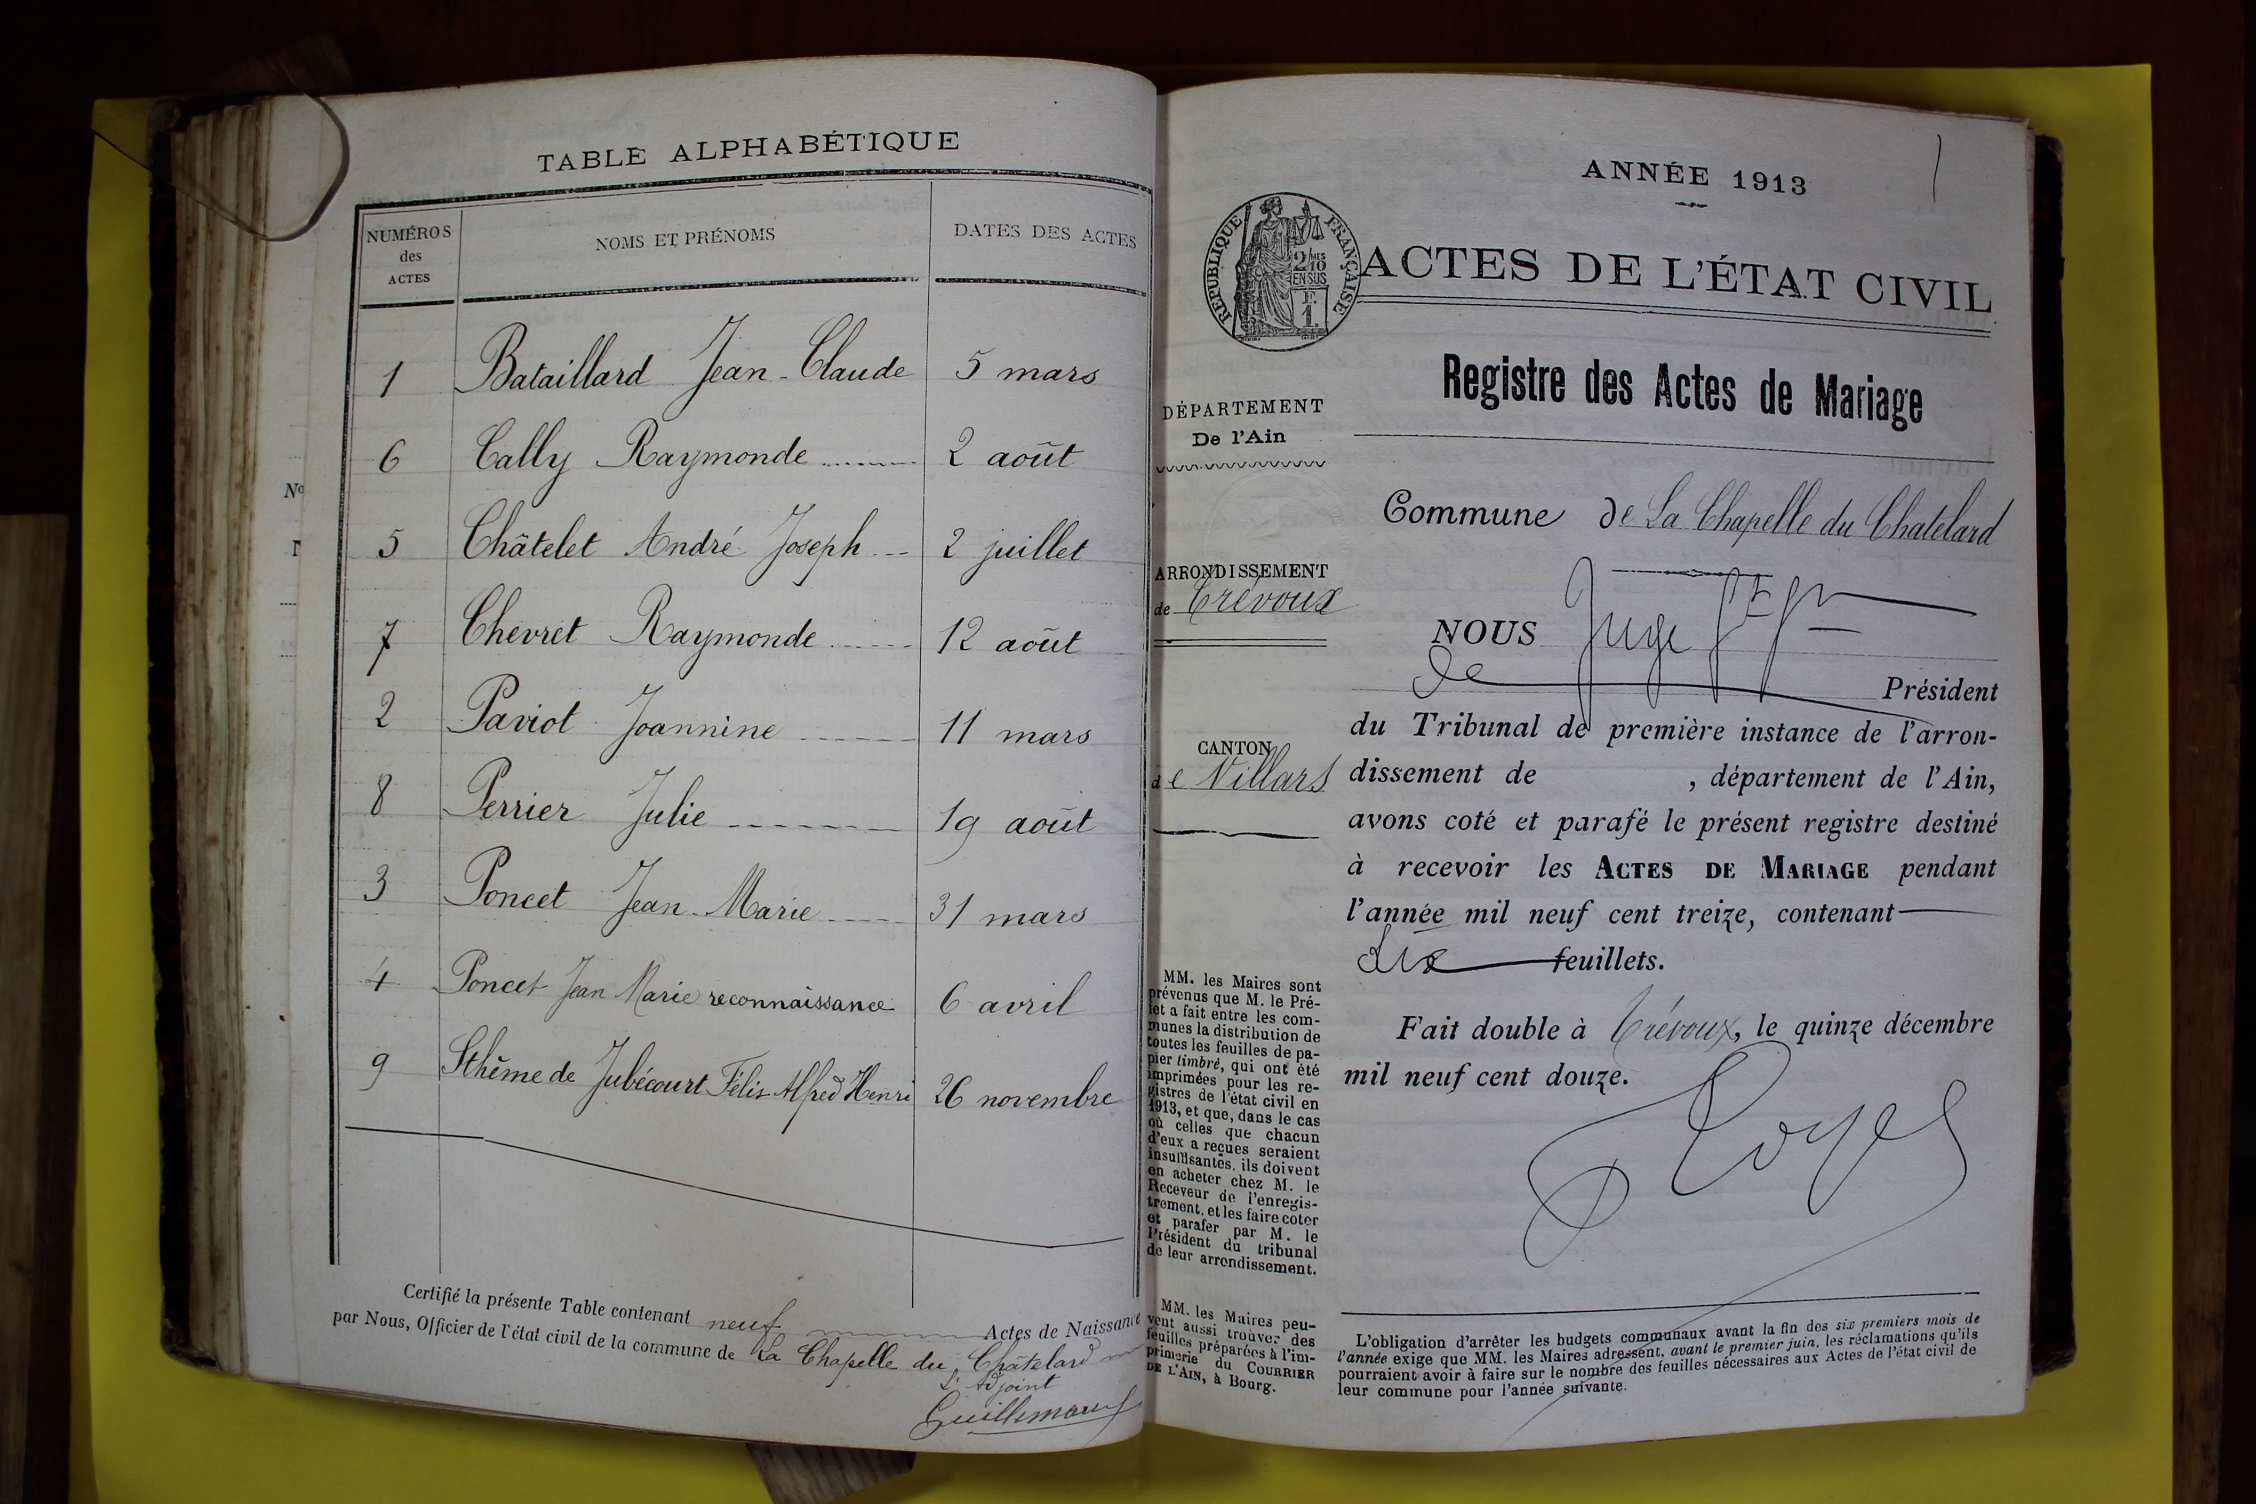 TABLE ALPHABÉTIQUE
NUMÉROS des ACTES NOMS ET PRÉNOMS DATES DES ACTES
1 Bataillard Jean-Claude 5 mars
6 Cally Raymonde 2 août
5 Châtelet André Joseph 2 juillet
7 Chevret Raymonde 12 août
2 Paviot Joannine 11 mars
8 Perrier Julie 19 août
3 Poncet Jean-Marie 31 mars
4 Poncet Jean Marie reconnaissance 6 avril
9 Sthème de Jubécourt Félix Alfred Henri 26 novembre
Certifié la présente Table contenant neuf Actes de Naissance
par Nous, Officier de l'état civil de la commune de La Chapelle du Châtelard
L'Adjoint
Nº
ANNÉE 1913
1
RÉPUBLIQUE FRANÇAISE
2/10
EN SUS
F.
1.
ACTES DE L'ÉTAT CIVIL
Registre des Actes de Mariage
DÉPARTEMENT
De l'Ain
ARRONDISSEMENT
de Trévoux
CANTON
de Villars
MM. les Maires sont
prévenus que M. le Pré-
fet a fait entre les com-
munes la distribution de
toutes les feuilles de pa-
pier timbré, qui ont été
imprimées pour les re-
gistres de l'état civil en
1913, et que, dans le cas
où celles que chacun
d'eux a reçues seraient
insuffisantes, ils doivent
en acheter chez M. le
Receveur de l'enregis-
trement, et les faire coter
et parafer par M. le
Président du tribunal
de leur arrondissement.
MM. les Maires peu-
vent aussi trouver des
feuilles préparées à l'im-
primerie du COURRIER
DE L'AIN, à Bourg.
Commune de La Chapelle du Chatelard
NOUS Juge
de Président
du Tribunal de première instance de l'arron-
dissement de , département de l'Ain,
avons coté et parafé le présent registre destiné
à recevoir les ACTES DE MARIAGE pendant
l'année mil neuf cent treize, contenant
dix feuillets.
Fait double à Trévoux, le quinze décembre
mil neuf cent douze.
L'obligation d'arrêter les budgets communaux avant la fin des six premiers mois de
l'année exige que MM. les Maires adressent, avant le premier juin, les réclamations qu'ils
pourraient avoir à faire sur le nombre des feuilles nécessaires aux Actes de l'état civil de
leur commune pour l'année suivante.